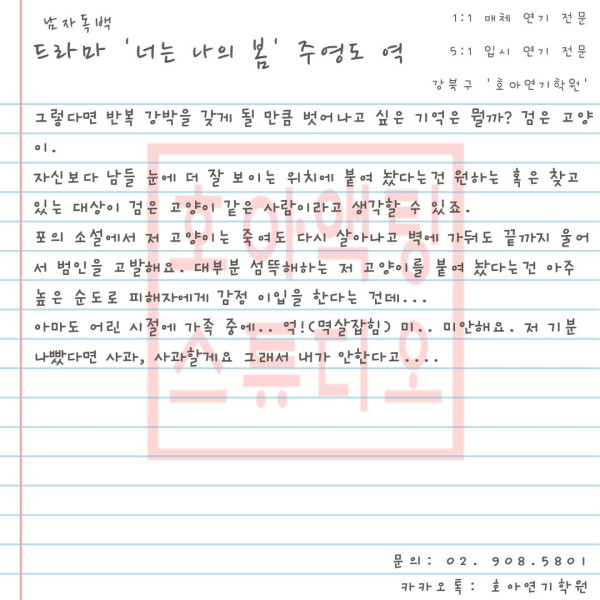 남자독백
1:1 매체 연기 전문
드라마 '너는 나의 봄' 주영도 역
5:1 입시 연기 전문
강북구 '호아연기학원'
그렇다면 반복 강박을 갖게 될 만큼 벗어나고 싶은 기억은 뭘까? 검은 고양
이.
자신보다 남들 눈에 더 잘 보이는 위치에 붙여 놨다는건 원하는 혹은 찾고
있는 대상이 검은 고양이 같은 사람이라고 생각할 수 있죠.
포의 소설에서 저 고양이는 죽여도 다시 살아나고 벽에 가둬도 끝까지 울어
서 범인을 고발해요. 대부분 섬뜩해하는 저 고양이를 붙여 놨다는건 아주
높은 순도로 피해자에게 감정 이입을 한다는 건데...
아마도 어린 시절에 가족 중에.. 억!(멱살잡힘) 미.. 미안해요. 저 기분
나빴다면 사과, 사과할게요 그래서 내가 안한다고....
호아액팅
스튜디오
문의: 02. 908.5801
카카오톡: 호아연기학원